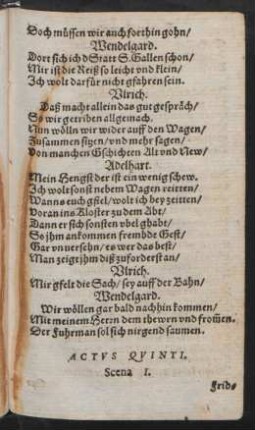 Doch müssen wir auch forthin gohn/
Wendelgard.
Dort sich ich d Statt S. Gallen schon/
Mir ist die Reiß so leicht vnd klein/
Ich wolt darfür nicht gfahren sein.
Vlrich.
Daß macht allein das gut gespräch/
So wir getriben allgemach.
Nun wölln wir wider auff den Wagen/
Zusammen sitzen/ vnd mehr sagen/
Von manchen Gschichten Alt vnd New/
Adelhart.
Mein Hengst der ist ein wenig schew.
Ich wolt sonst nebem Wagen reitten/
Wanns euch gfiel/ wolt ich bey zeitten/
Voran ins Kloster zu dem Abt/
Dann er sich sonsten vbel ghabt/
So jhm ankommen frembde Gest/
Gar vnuersehn/ es wer das best/
Man zeigt jhm diß zuforderst an/
Vlrich.
Mir gfelt die Sach/ sey auff der Bahn/
Wendelgard.
Wir wöllen gar bald nachhin kommen/
Mit meinem Heren dem thewrn vnd from̃en.
Der Fuhrman sol sich nirgend saumen.
ACTVS QVINTI.
Scena I.
Frid⸗